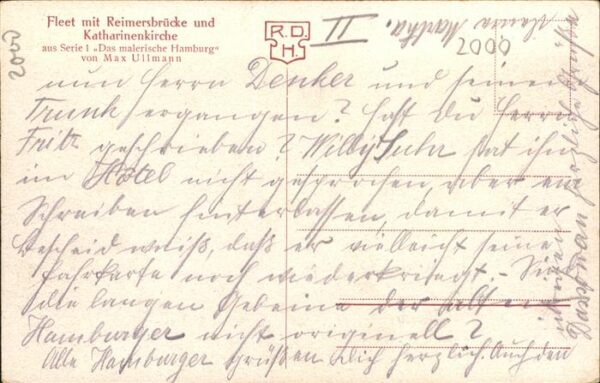 Fleet mit Reimersbrücke und
Katharinenkirche
aus Serie 1 „Das malerische Hamburg"
von Max Ullmann
R.D.
H.
II
2000
2000
Martha.
nun Herrn Denker und seinen
Trunk ergangen? Hast du Herrn
Fritz geschrieben? Willy Suhr hat ihn
im Hotel nicht gesprochen, aber ein
Schreiben hinterlassen, damit er
Bescheid weiß, daß er vielleicht seine
Fahrkarte noch wiederkriegt. - Sind
die langen Gebeine der alten
Hamburger nicht originell?
Alle Hamburger grüßen Dich herzlich. Auch den
herzliche Grüße